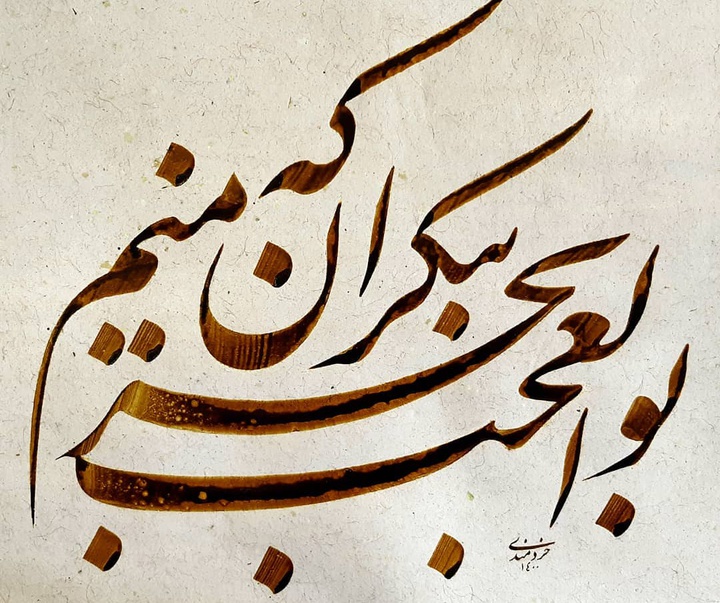 بوالعجب بحر بیکران که منم
خردمندی
۱۴۰۰